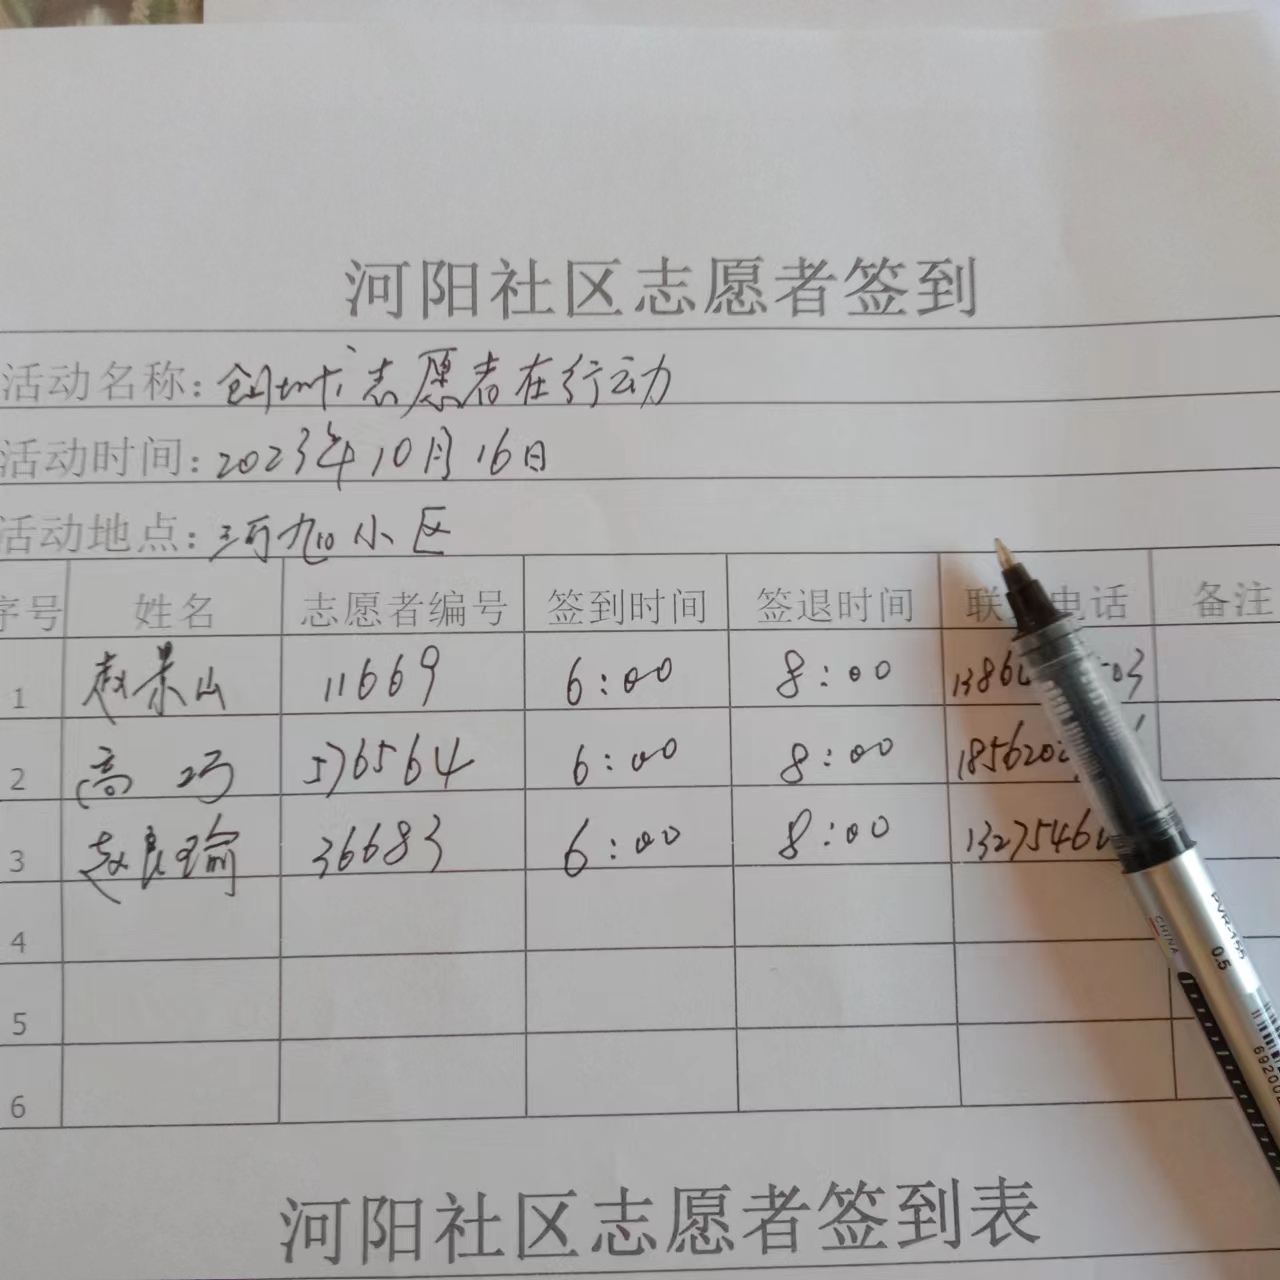 河阳社区志愿者签到
活动名称: 创城志愿者在行动
活动时间: 2023年10月16日
活动地点: 小区
序号 姓名 志愿者编号 签到时间 签退时间 联 电话 备注
1 赵景山 11669 6:00 8:00 1386 03
2 高巧 576564 6:00 8:00 185620
3 赵良瑜 36683 6:00 8:00 1327546
4
5
6
河阳社区志愿者签到表
PVR-155
0.5
CHINA
69200